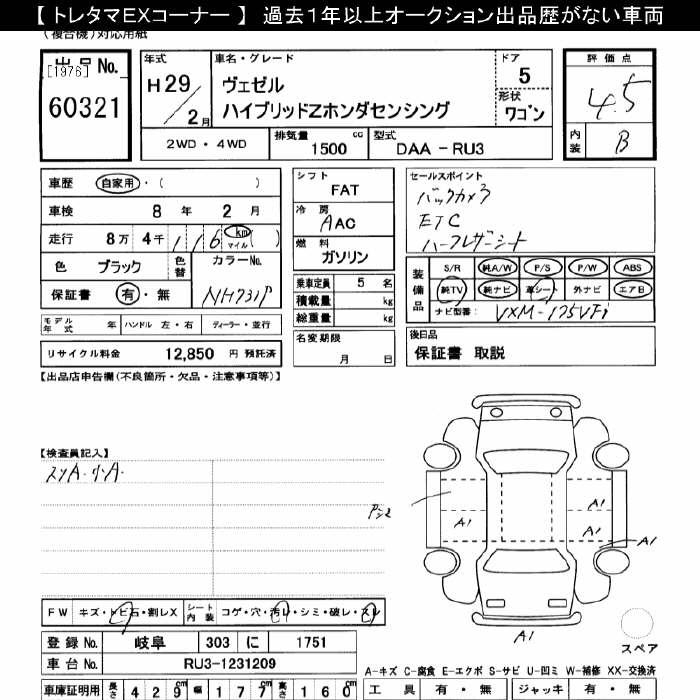 【 トレタマEXコーナー 】 過去1年以上オークション出品歴がない車両
(複合機)対応用紙
出品No.
[1976]
60321
年式
H29
2月
車名・グレード
ヴェゼル
ハイブリッドZホンダセンシング
ドア
5
形状
ワゴン
評価点
4.5
内装
B
2WD・4WD
排気量
1500 cc
型式
DAA-RU3
車歴 自家用・( )
車検 8年 2月
走行 8万 4千 116 km マイル ( )
色 ブラック 色替 カラーNo.
保証書 有・無 NH731P
モデル年式 年 ハンドル 左・右 ディーラー・並行
リサイクル料金 12,850 円 預託済
シフト
FAT
冷房
AAC
燃料
ガソリン
乗車定員 5 名
積載量 kg
総重量 kg
名変期限
月 日
セールスポイント
バックカメラ
ETC
ハーフレザーシート
装備品
S/R 純A/W P/S P/W ABS
純TV 純ナビ 革シート 外ナビ エアB
ナビ型番: VXM-175VFi
後日品
保証書 取説
【出品店申告欄(不良箇所・欠品・注意事項等)】
【検査員記入】
スリA・小A・
A1
A1
A1
A1
A1
FW キズ・トビ石・割レX シート内装 コゲ・穴・汚レ・シミ・破レ・スレ
登録No. 岐阜 303 に 1751
車台No. RU3-1231209
スペア
A-キズ C-腐食 E-エクボ S-サビ U-凹ミ W-補修 XX-交換済
車庫証明用 長さ 429cm 幅 177cm 高さ 160cm
工具 有・無 ジャッキ 有・無